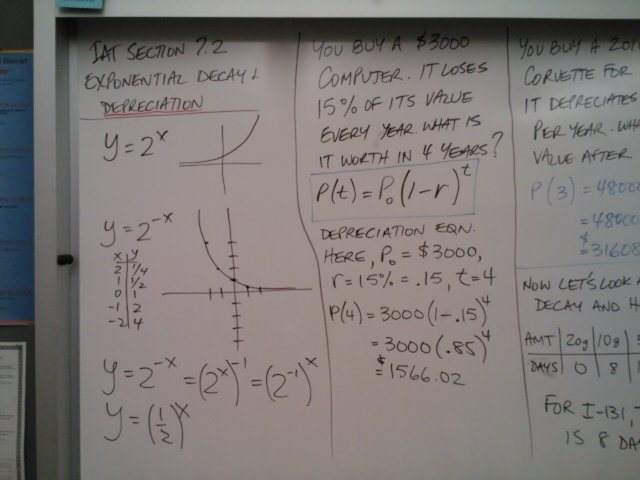 IAT SECTION 7.2
EXPONENTIAL DECAY &
DEPRECIATION
y = 2^x
y = 2^-x
x | y
2 | 1/4
1 | 1/2
0 | 1
-1 | 2
-2 | 4
y = 2^-x = (2^x)^-1 = (2^-1)^x
y = (1/2)^x
YOU BUY A $3000
COMPUTER. IT LOSES
15% OF ITS VALUE
EVERY YEAR. WHAT IS
IT WORTH IN 4 YEARS?
P(t) = P₀(1-r)^t
DEPRECIATION EQN.
HERE, P₀ = $3000,
r = 15% = .15, t = 4
P(4) = 3000(1-.15)^4
= 3000(.85)^4
= $1566.02
YOU BUY A 201
CORVETTE FOR
IT DEPRECIATES
PER YEAR. WHA
VALUE AFTER
P(3) = 48000
= 48000
= $31608
NOW LET'S LOOK A
DECAY AND H
AMT | 20g | 10g | 5
DAYS | 0 | 8 | 1
FOR I-131, T
IS 8 DA
District